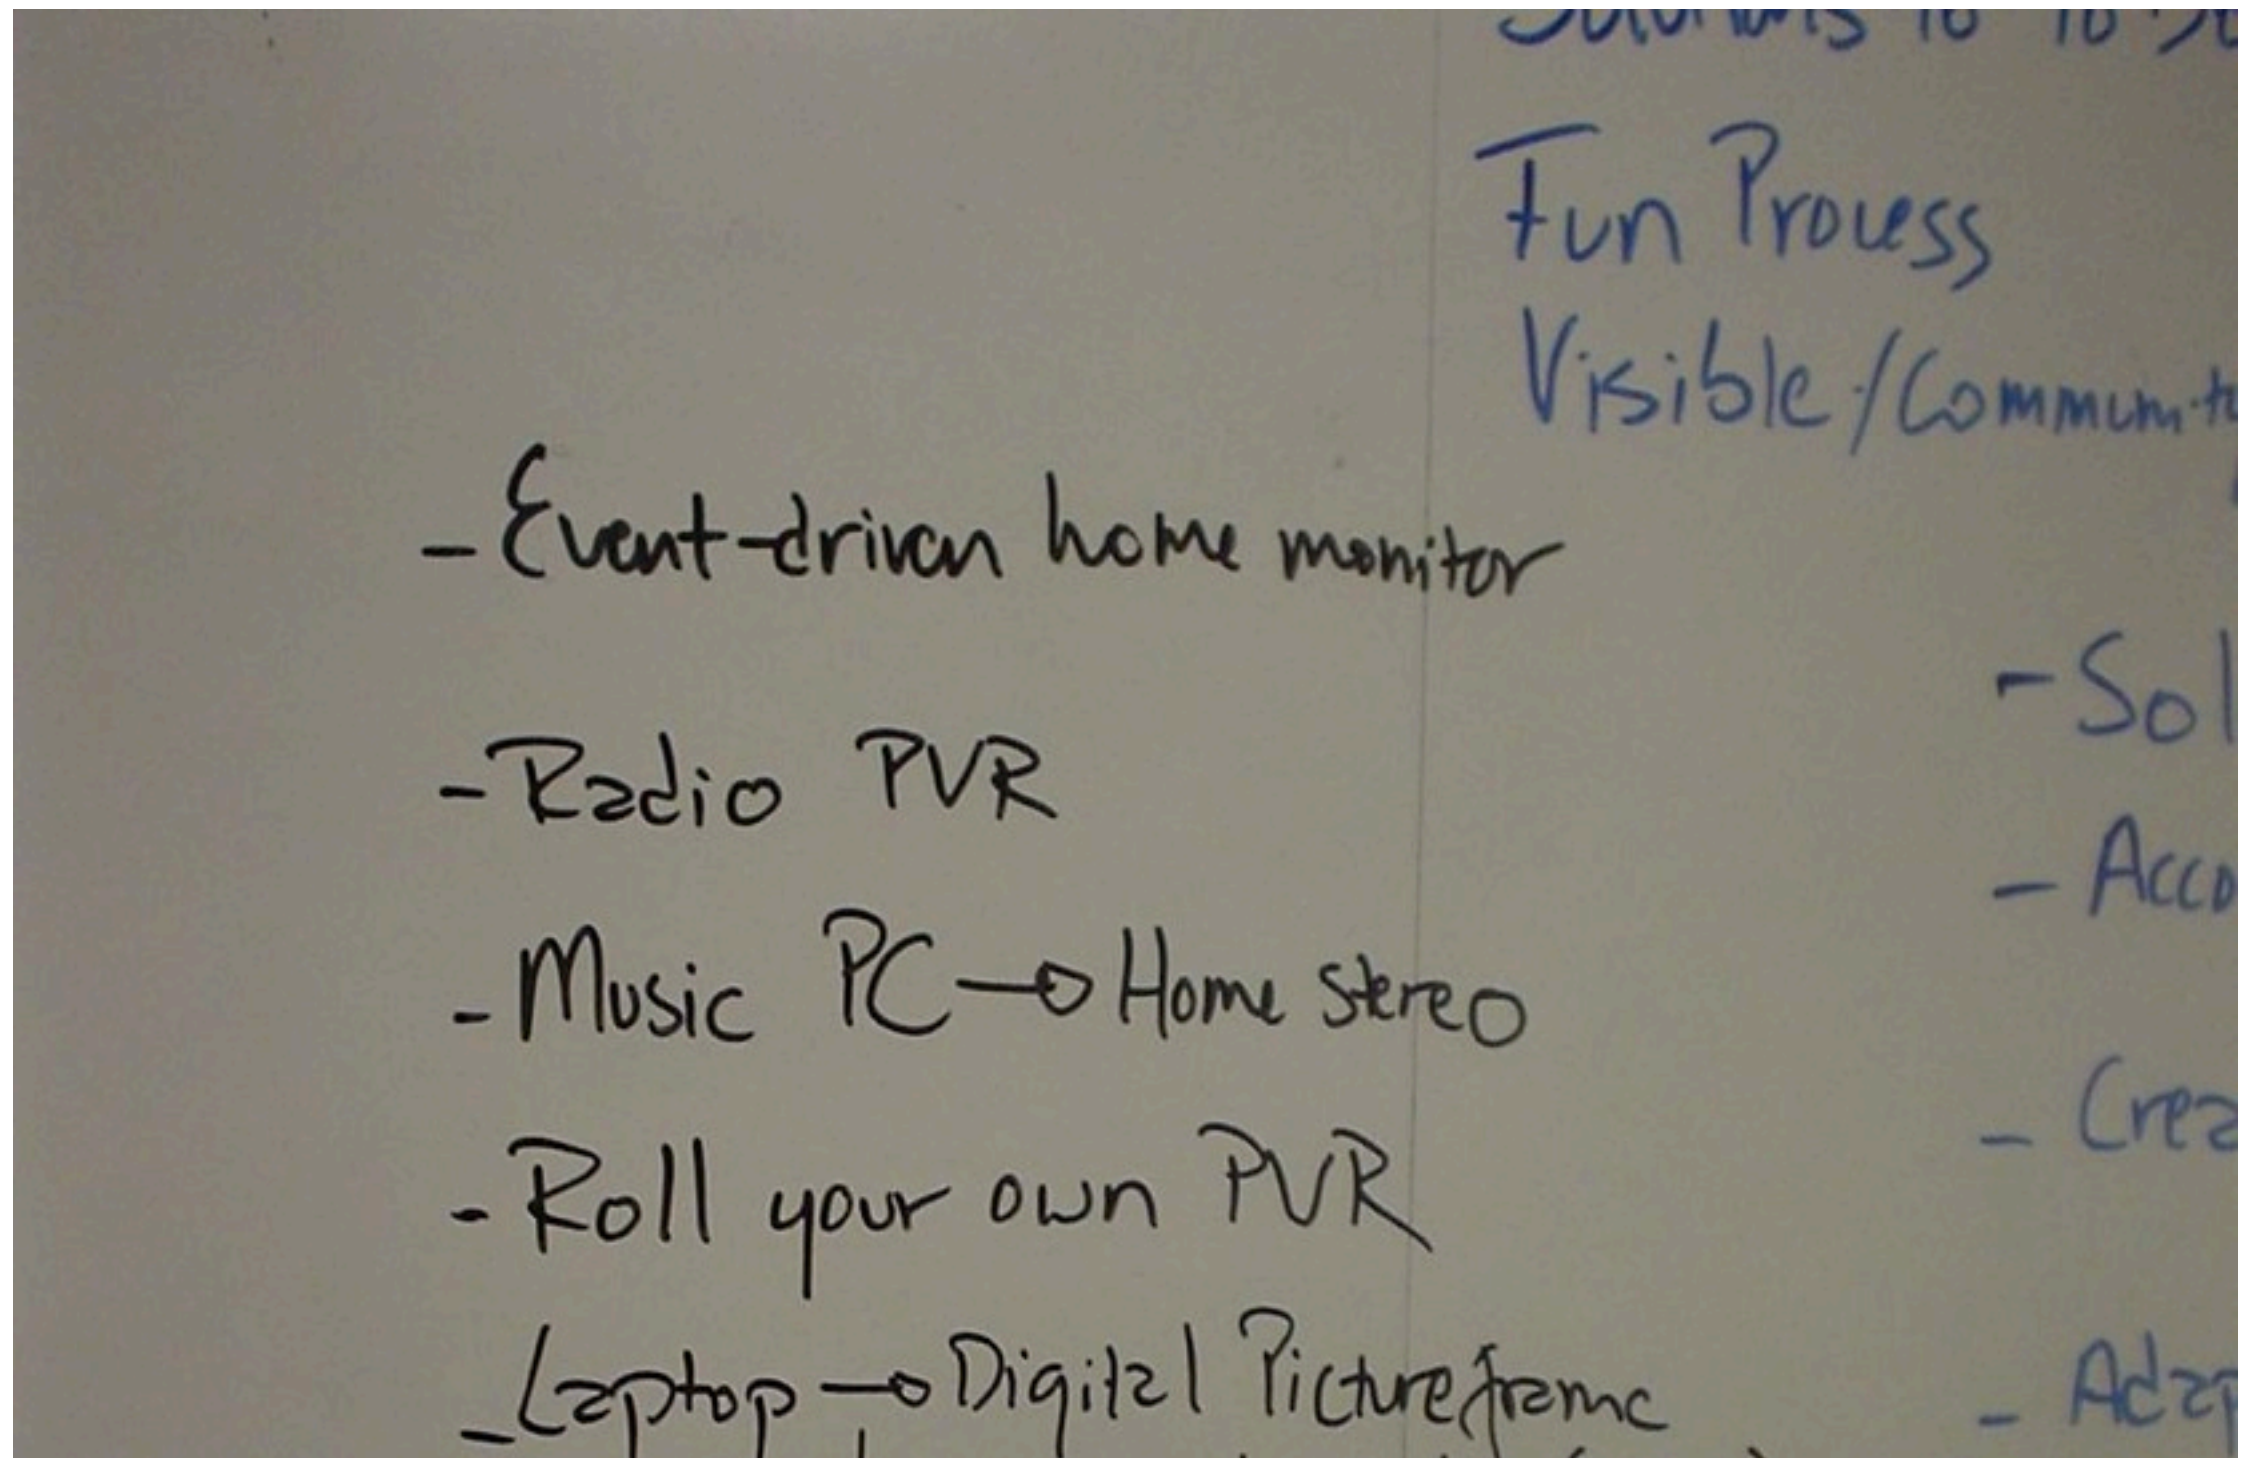 Fun Process
Visible/Community
- Event-driven home monitor
- Radio PVR
- Music PC → Home stereo
- Roll your own PVR
- Laptop → Digital Picture frame
- Sol
- Acco
- Crea
- Adap